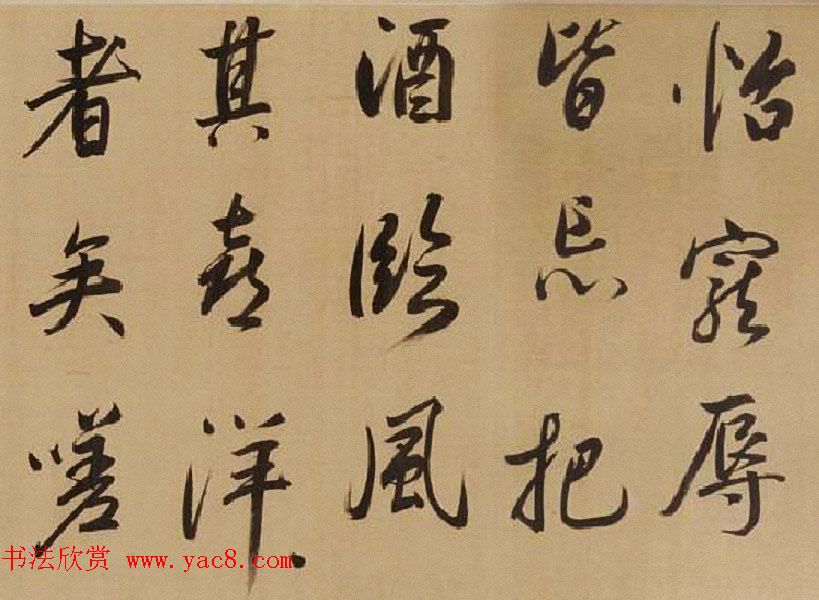 怡寵辱
皆忘把
酒臨風
其喜洋、
者矣嗟
书法欣赏 www.yac8.com